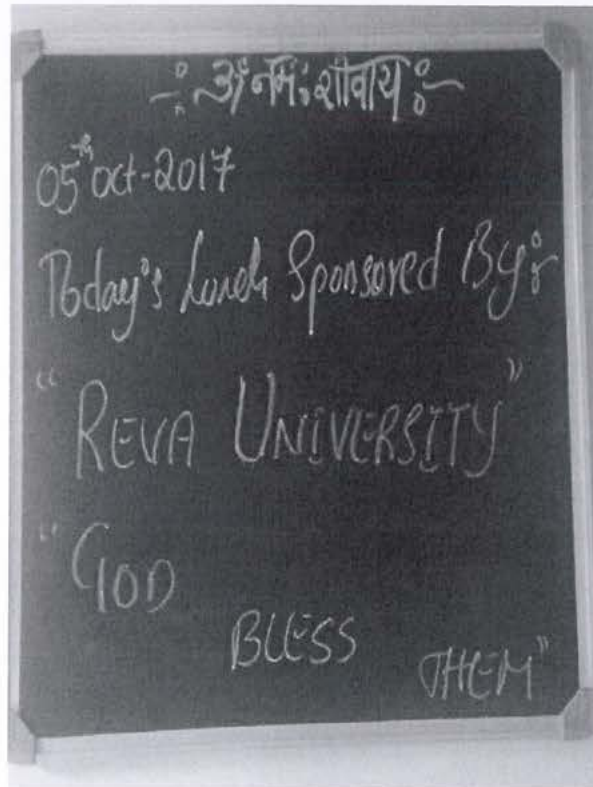 -: ॐ नमः शिवाय :-
05th oct-2017
Today's Lunch Sponsored By:-
"REVA UNIVERSITY"
"GOD
BLESS
THEM"